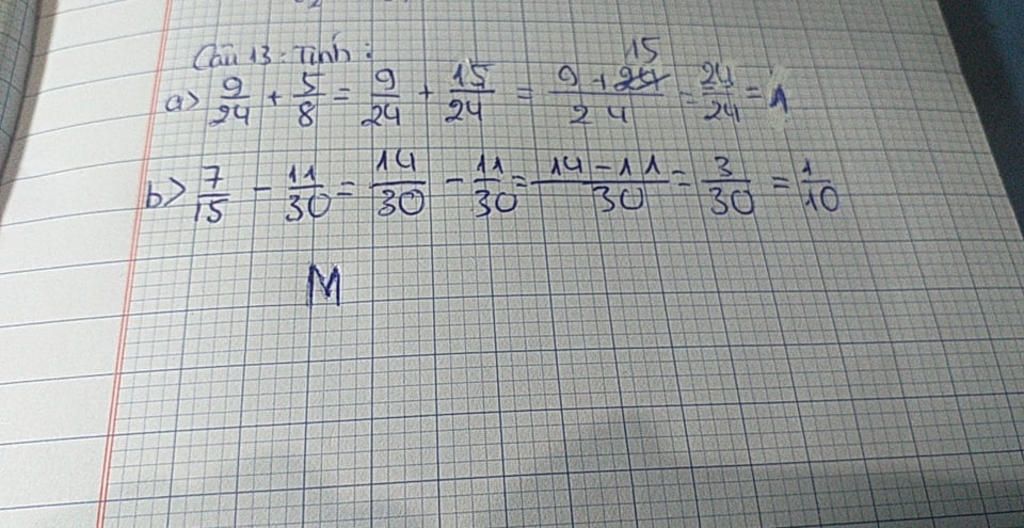 Câu 13: Tính:
a> 9/24 + 5/8 = 9/24 + 15/24 = (9 + 15)/24 = 24/24 = 1
b> 7/15 - 11/30 = 14/30 - 11/30 = (14 - 11)/30 = 3/30 = 1/10
M